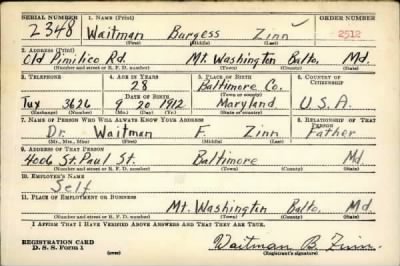 SERIAL NUMBER 1. NAME (Print) ORDER NUMBER
2348 Waitman Burgess Zinn 2512
(First) (Middle) (Last)
2. ADDRESS (Print)
Old Pimilico Rd. Mt. Washington Balto. Md.
(Number and street or R. F. D. number) (Town) (County) (State)
3. TELEPHONE 4. AGE IN YEARS 5. PLACE OF BIRTH 6. COUNTRY OF CITIZENSHIP
28 Baltimore Co.
DATE OF BIRTH (Town or county)
Tux 3626 9 20 1912 Maryland U.S.A.
(Exchange) (Number) (Mo.) (Day) (Yr.) (State or country)
7. NAME OF PERSON WHO WILL ALWAYS KNOW YOUR ADDRESS 8. RELATIONSHIP OF THAT PERSON
Dr. Waitman F. Zinn Father
(Mr., Mrs., Miss) (First) (Middle) (Last)
9. ADDRESS OF THAT PERSON
4006 St. Paul St. Baltimore Md.
(Number and street or R. F. D. number) (Town) (County) (State)
10. EMPLOYER'S NAME
Self
11. PLACE OF EMPLOYMENT OR BUSINESS
Mt. Washington Balto. Md.
(Number and street or R. F. D. number) (Town) (County) (State)
I AFFIRM THAT I HAVE VERIFIED ABOVE ANSWERS AND THAT THEY ARE TRUE.
REGISTRATION CARD Waitman B. Zinn.
D. S. S. Form 1 (over) (Registrant's signature)